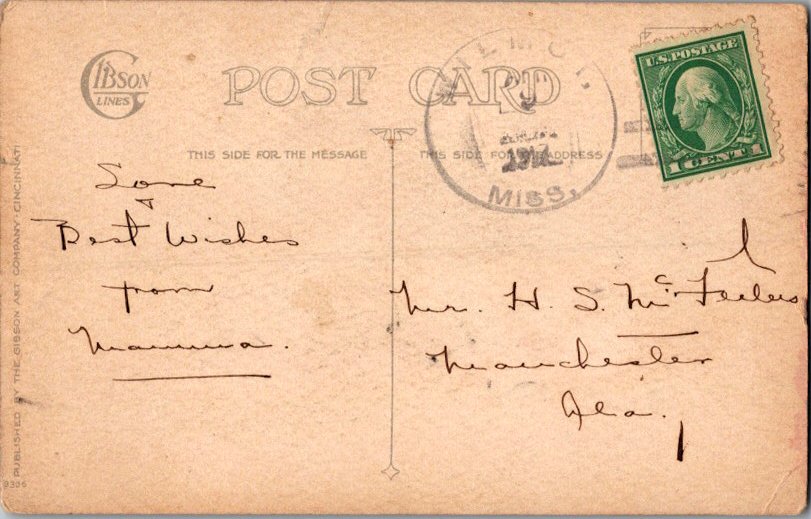 GIBSON
LINES
POST CARD
THIS SIDE FOR THE MESSAGE
THIS SIDE FOR ADDRESS
U.S. POSTAGE
1 CENT 1
MISS.
Love
&
Best Wishes
from
Mamma.
Mr. H. S. Mc
Manchester
Ala.
PUBLISHED BY THE GIBSON ART COMPANY, CINCINNATI